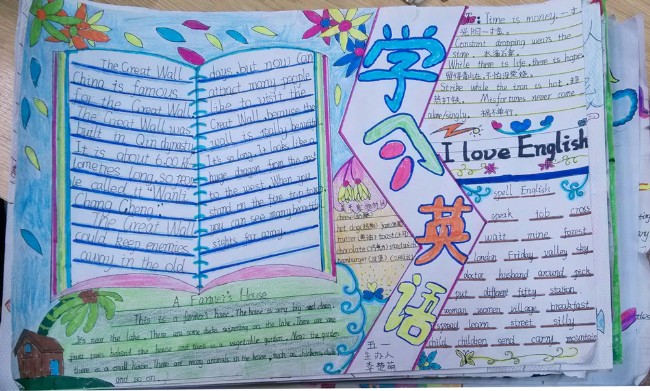 The Great Wall
China is famous
for the Great Wall.
The Great Wall was
built in Qin dynasty
It is about 6.00
lometres long, so
we called it "Wanli
Chang Cheng.
The Great Wall
could keep enemies
away in the old
days. but now can
attract many people
like to visit the
Great Wall, because the
wall is really beautiful
It's so long. It looks like a
huge dragon from the east
to the west. When you
stand on the
you can see many beautiful
sights far away.
学习英语
Time is money. 一寸
光阴一寸金.
Constant dropping wears the
stone. 水滴石穿.
While there is life, there is hope.
留得青山在,不怕没柴烧.
Strike while the iron is hot. 趁
热打铁. Misfortunes never come
alone/singly. 祸不单行.
I love English
spell English
speak job cross
wait mine forest
London Friday valley sky
doctor husband around pick
put different fifty station
woman women village breakfast
spread learn street silly
child children send carry mountain
A Farmer's House
This is a farmer's house. The house is very big and clean.
It's near the lake. There are some ducks swimming on the lake. There are some
behind the house and there is a vegetable garden. Near the garden
there is a small house. There are many animals in the house, such as chickens, ducks
and so on.
五一
主办人